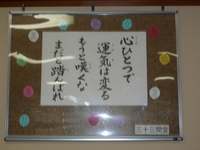 心ひとつで
運気は変る
もうと嘆くな
まだと踏んばれ
三十三間堂